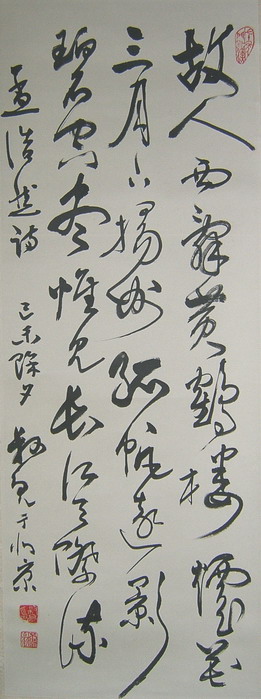 故人西辭黄鶴楼煙花
三月下揚州孤帆遠影
碧空尽惟见长江天際流
孟浩然詩 己未除夕 于北京